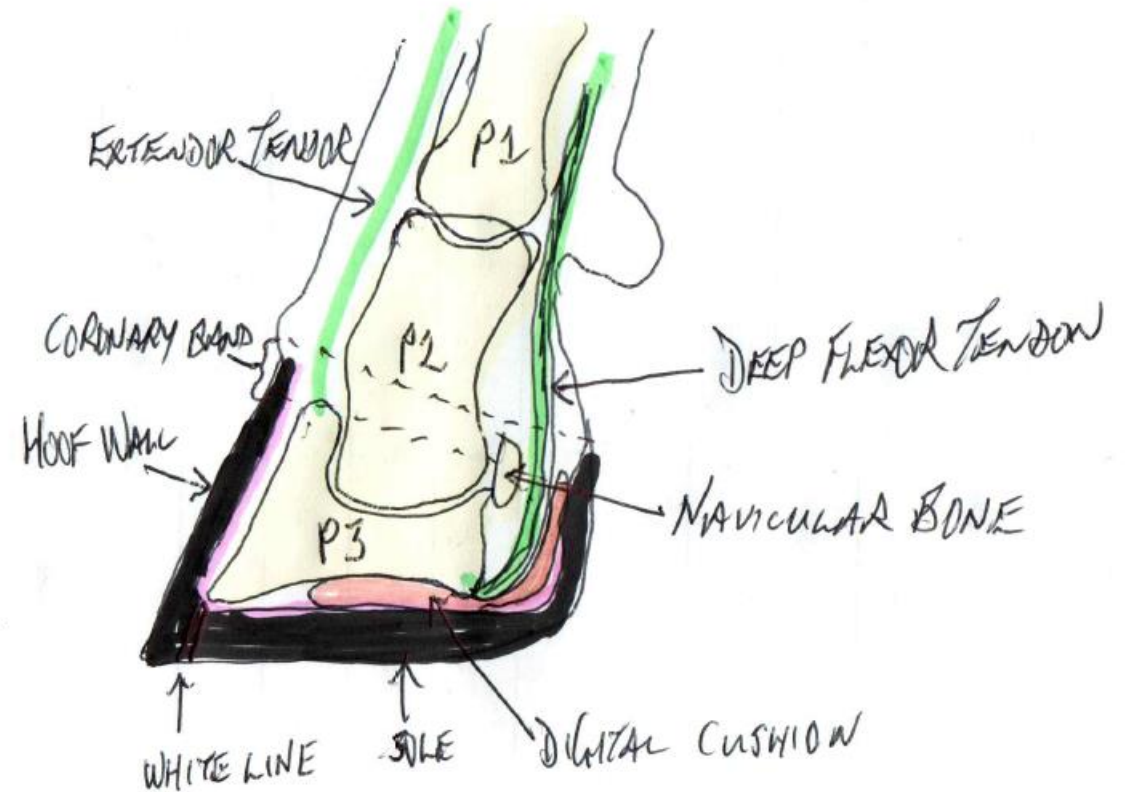 P1
EXTENDOR TENDOR
CORONARY BAND
P2
DEEP FLEXOR TENDON
HOOF WALL
NAVICULAR BONE
P3
WHITE LINE
SOLE
DIGITAL CUSHION